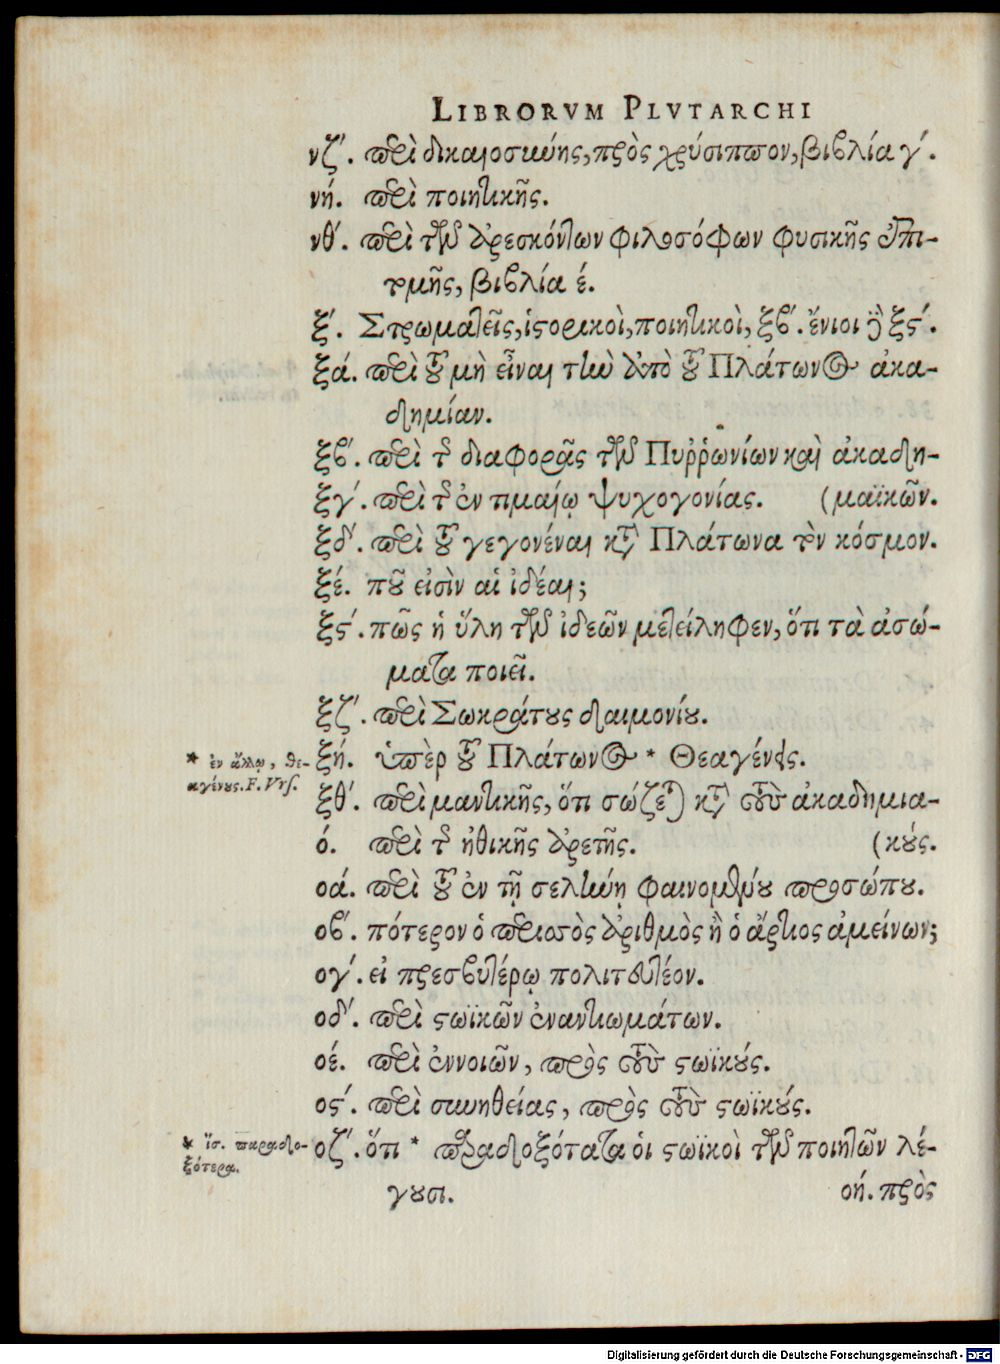 LIBRORVM PLVTARCHI
νζʹ. περὶ δικαιοσύνης, πρὸς χρύσιππον, βιβλία γʹ.
νή. περὶ ποιητικῆς.
νθʹ. περὶ τῶν ἀρεσκόντων φιλοσόφων φυσικῆς ἐπι-
τομῆς, βιβλία έ.
ξʹ. Στρωματεῖς, ἱστορικοὶ, ποιητικοὶ, ξβʹ. ἔνιοι δὲ ξϛʹ.
ξά. περὶ τοῦ μὴ εἶναι τὴν ἀπὸ τοῦ Πλάτωνος ἀκα-
δημίαν.
ξβʹ. περὶ τῆς διαφορᾶς τῶν Πυῤῥωνίων καὶ ἀκαδη-
ξγʹ. περὶ τῆς ἐν τιμαίῳ ψυχογονίας. (μαϊκῶν.
ξδʹ. περὶ τοῦ γεγονέναι κατὰ Πλάτωνα τὸν κόσμον.
ξέ. ποῦ εἰσὶν αἱ ἰδέαι;
ξϛʹ. πῶς ἡ ὕλη τῶν ἰδεῶν μετείληφεν, ὅτι τὰ ἀσώ-
ματα ποιεῖ.
ξζʹ. περὶ Σωκράτους δαιμονίου.
ξή. ὑπὲρ τοῦ Πλάτωνος * Θεαγένους.
* ἐν ἄλλῳ, θε-
αγένους. F. Vrs.
ξθʹ. περὶ μαντικῆς, ὅτι σώζεται κατὰ τοὺς ἀκαδημια-
ό. περὶ τῆς ἠθικῆς ἀρετῆς. (κούς.
οά. περὶ τοῦ ἐν τῇ σελήνῃ φαινομένου προσώπου.
οβʹ. πότερον ὁ περισσὸς ἀριθμὸς ἢ ὁ ἄρτιος ἀμείνων;
ογʹ. εἰ πρεσβυτέρῳ πολιτευτέον.
οδʹ. περὶ στωϊκῶν ἐναντιωμάτων.
οέ. περὶ ἐννοιῶν, πρὸς τοὺς στωϊκούς.
οϛʹ. περὶ συνηθείας, πρὸς τοὺς στωϊκούς.
οζʹ. ὅτι * παραδοξότατα οἱ στωϊκοὶ τῶν ποιητῶν λέ-
* ἴσ. παραδο-
ξότερα.
γουσι. οή. πρὸς
Digitalisierung gefördert durch die Deutsche Forschungsgemeinschaft - DFG